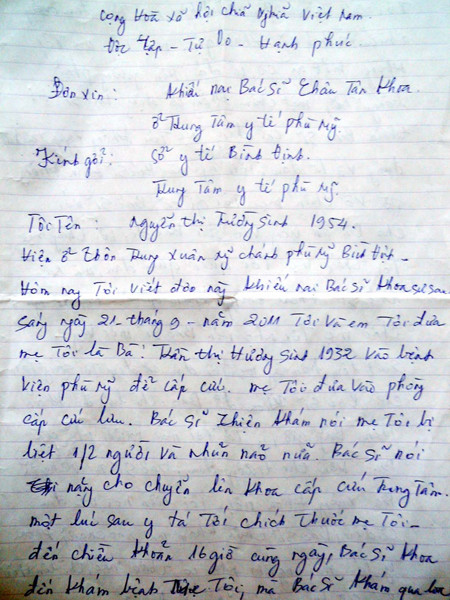 Cộng Hoà xã hội chủ nghĩa Việt Nam.
Độc lập - Tự Do - Hạnh phúc.
Đơn xin: Khiếu nại Bác Sĩ Châu Tân Khoa.
ở Trung Tâm y tế phù Mỹ.
Kính gởi: Sở y tế Bình Định.
Trung Tâm y tế phù Mỹ.
Tôi Tên: Nguyễn thị Hường Sinh 1954.
Hiện ở Thôn Trung Xuân Mỹ chánh phù Mỹ Bình Định -
Hôm nay Tôi viết đơn này Khiếu nại Bác Sĩ Khoa sự sau
Sáng ngày 21 - tháng 9 - năm 2011 Tôi và em Tôi đưa
mẹ Tôi là Bà: Trần thị Hương Sinh 1932 vào bệnh
viện phù Mỹ để cấp cứu. mẹ Tôi đưa vào phòng
cấp cứu lưu. Bác Sĩ Thiện Khám nói mẹ Tôi bị
liệt 1/2 người và nhũn não nữa. Bác Sĩ nói
này cho chuyển lên Khoa cấp cứu Trung Tâm.
một lúc sau y tá Tới chích Thuốc mẹ Tôi -
đến chiều Khoản 16 giờ cùng ngày, Bác Sĩ Khoa
đến Khám bệnh Tôi, mà Bác Sĩ Khám qua loa